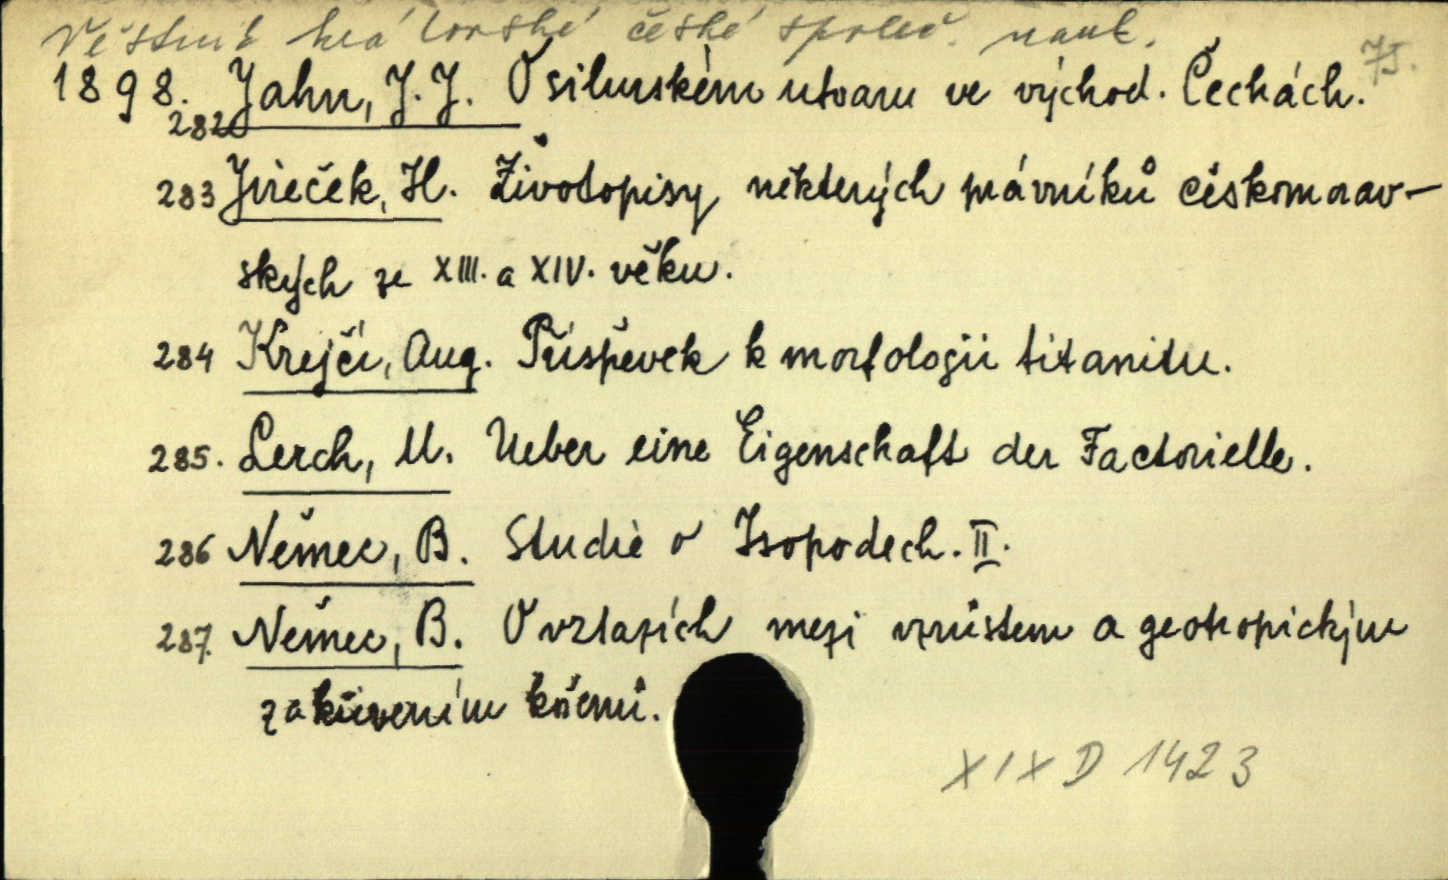 Věstník královské české společ. nauk.
75.
1898. Jahn, J. J. O silurském útvaru ve východ. Čechách.
282
283 Jireček, H. Životopisy některých právníků českomorav-
ských ze XIII. a XIV. věku.
284 Krejčí, Aug. Příspěvek k morfologii titanitu.
285. Lerch, M. Ueber eine Eigenschaft der Factorielle.
286 Němec, B. Studie o Isopodech. II.
287. Němec, B. O vztazích mezi vzrůstem a geotropickým
zakřivením kořenů.
XIX D 1423